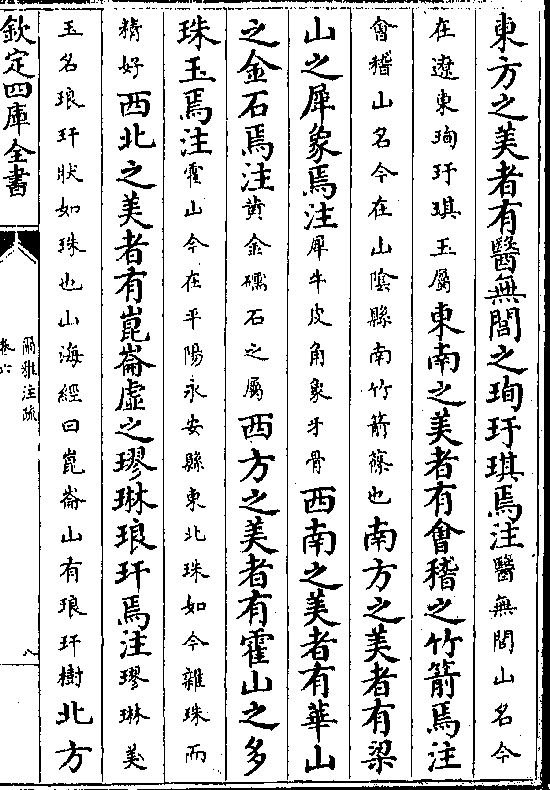 東方之美者有醫無閭之珣玗琪焉注醫無閭山名今
在遼東珣玗琪玉屬東南之美者有會稽之竹箭焉注
會稽山名今在山陰縣南竹箭篠也南方之美者有梁
山之犀象焉注犀牛皮角象牙骨西南之美者有華山
之金石焉注黄金礝石之屬西方之美者有霍山之多
珠玉焉注霍山今在平陽永安縣東北珠如今雜珠而
精好西北之美者有崑崙虛之璆琳琅玕焉注璆琳美
玉名琅玕狀如珠也山海經曰崑崙山有琅玕樹北方
欽定四庫全書
爾雅注疏
卷六
八